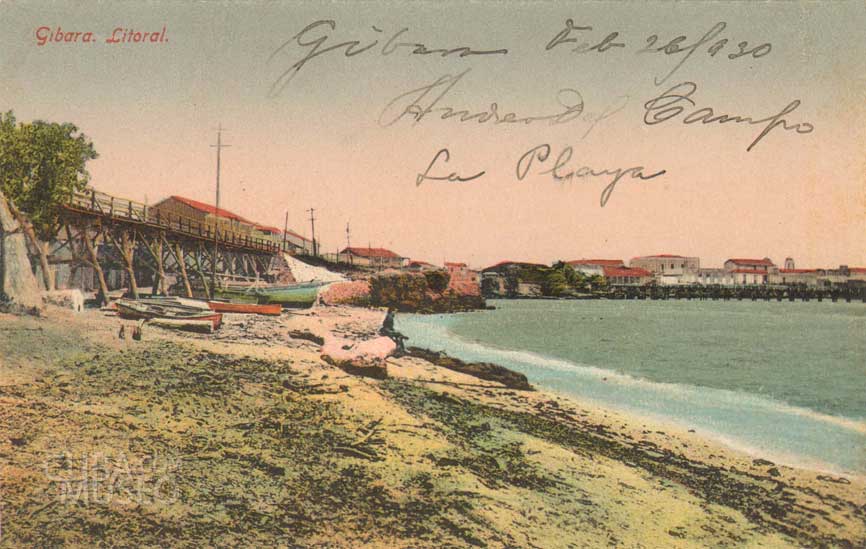 Gibara. Litoral.
Gibara Feb 26/930
Andres Del Campo
La Playa
CUBA
MUSEO